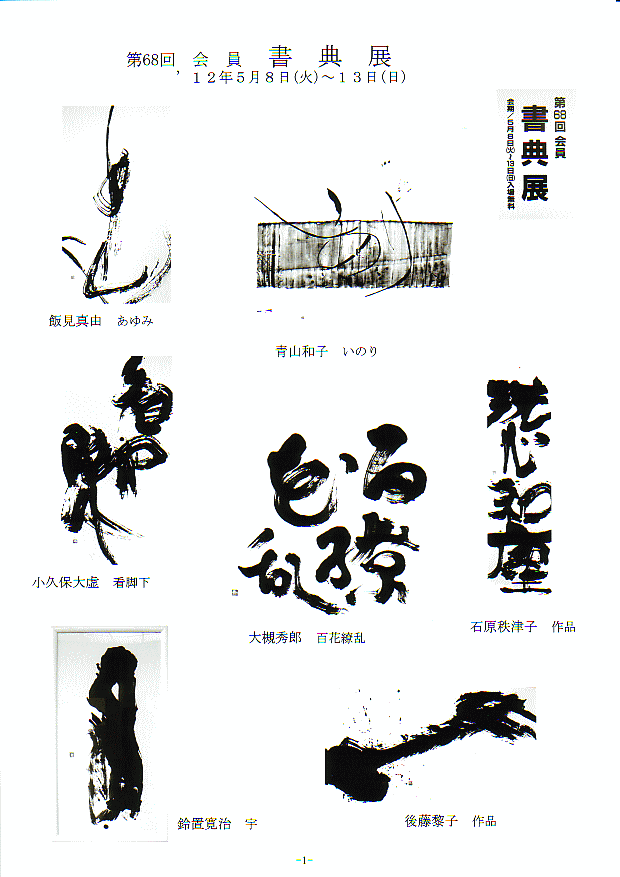 第68回 会 員 書 典 展
’１２年５月８日(火)～１３日(日)
第68回 会員
書典展
会期／5月8日(火)～13日(日)入場無料
飯見真由 あゆみ
青山和子 いのり
看脚下
百花繚乱
小久保大虚 看脚下
大槻秀郎 百花繚乱
石原秩津子 作品
鈴置寛治 宇
後藤黎子 作品
-1-